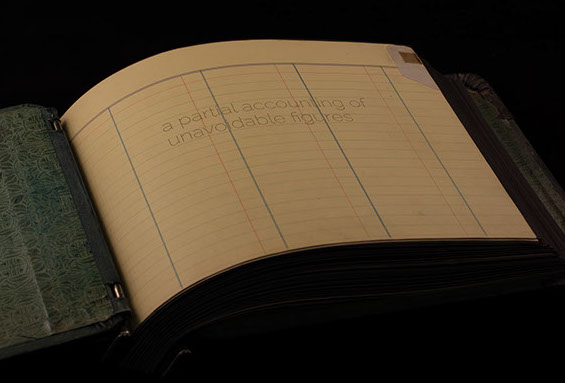 a partial accounting of
unavoidable figures